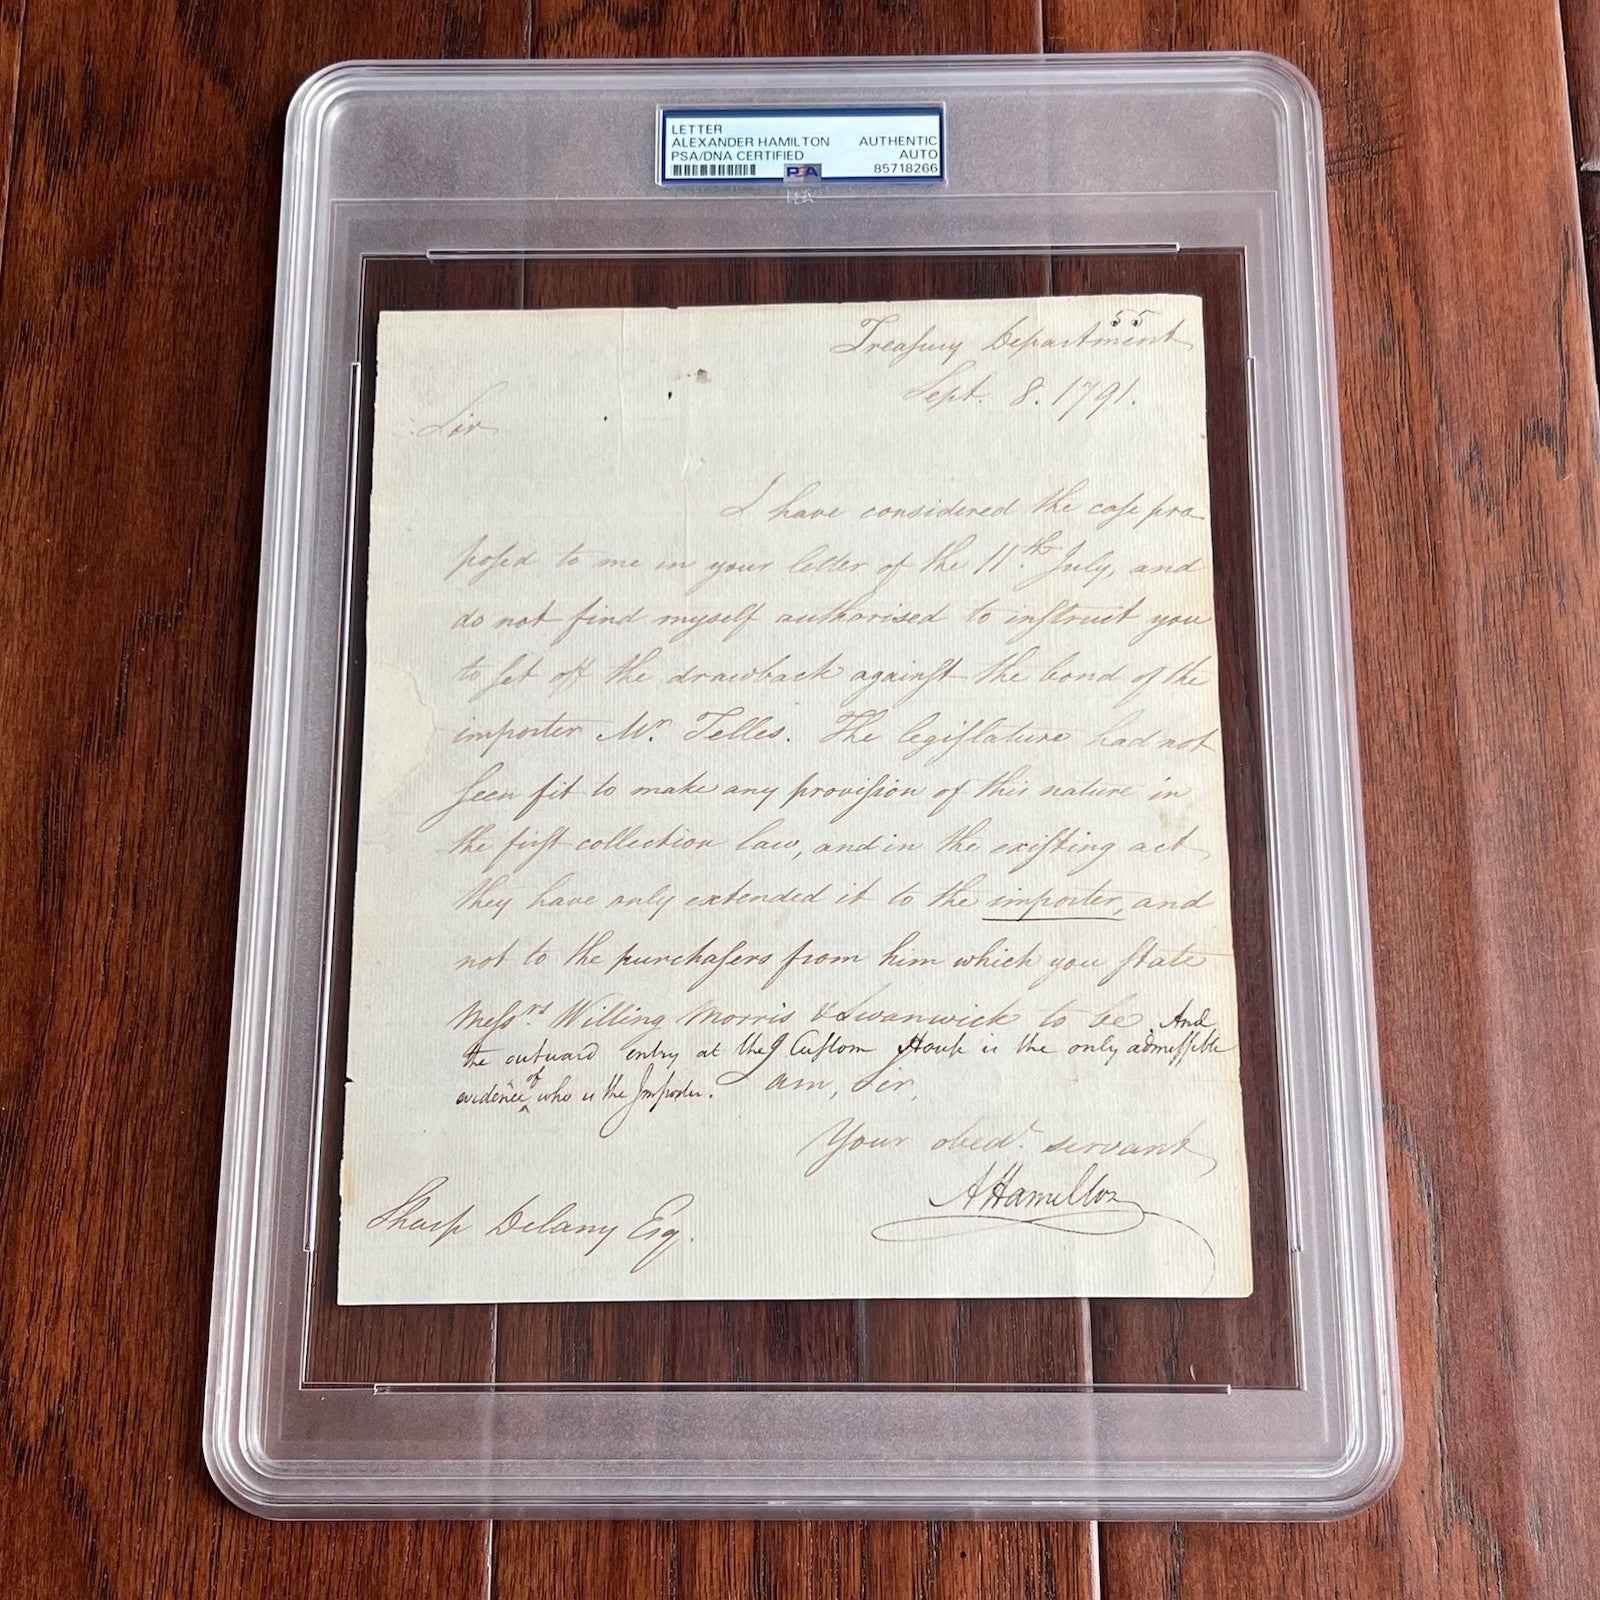 LETTER
ALEXANDER HAMILTON AUTHENTIC
PSA/DNA CERTIFIED AUTO
PSA 85718266
55
Treaſury Department
Sept. 8. 1791.
Sir
I have considered the caſe pro
poſed to me in your letter of the 11th. July, and
do not find myself authorised to inſtruct you
to ſet off the drawback againſt the bond of the
importer Mr. Telles. The legiſlature had not
ſeen fit to make any proviſion of this nature in
the firſt collection law, and in the exiſting act
they have only extended it to the importer, and
not to the purchaſers from him which you ſtate
Meſsrs. Willing Morris & Swanwick to be And
the outward entry at the Cuſtom Houſe is the only admiſsible
evidence of who is the Importer. I am, Sir,
Your obedt. servant
A Hamilton
Sharp Delany Esq.